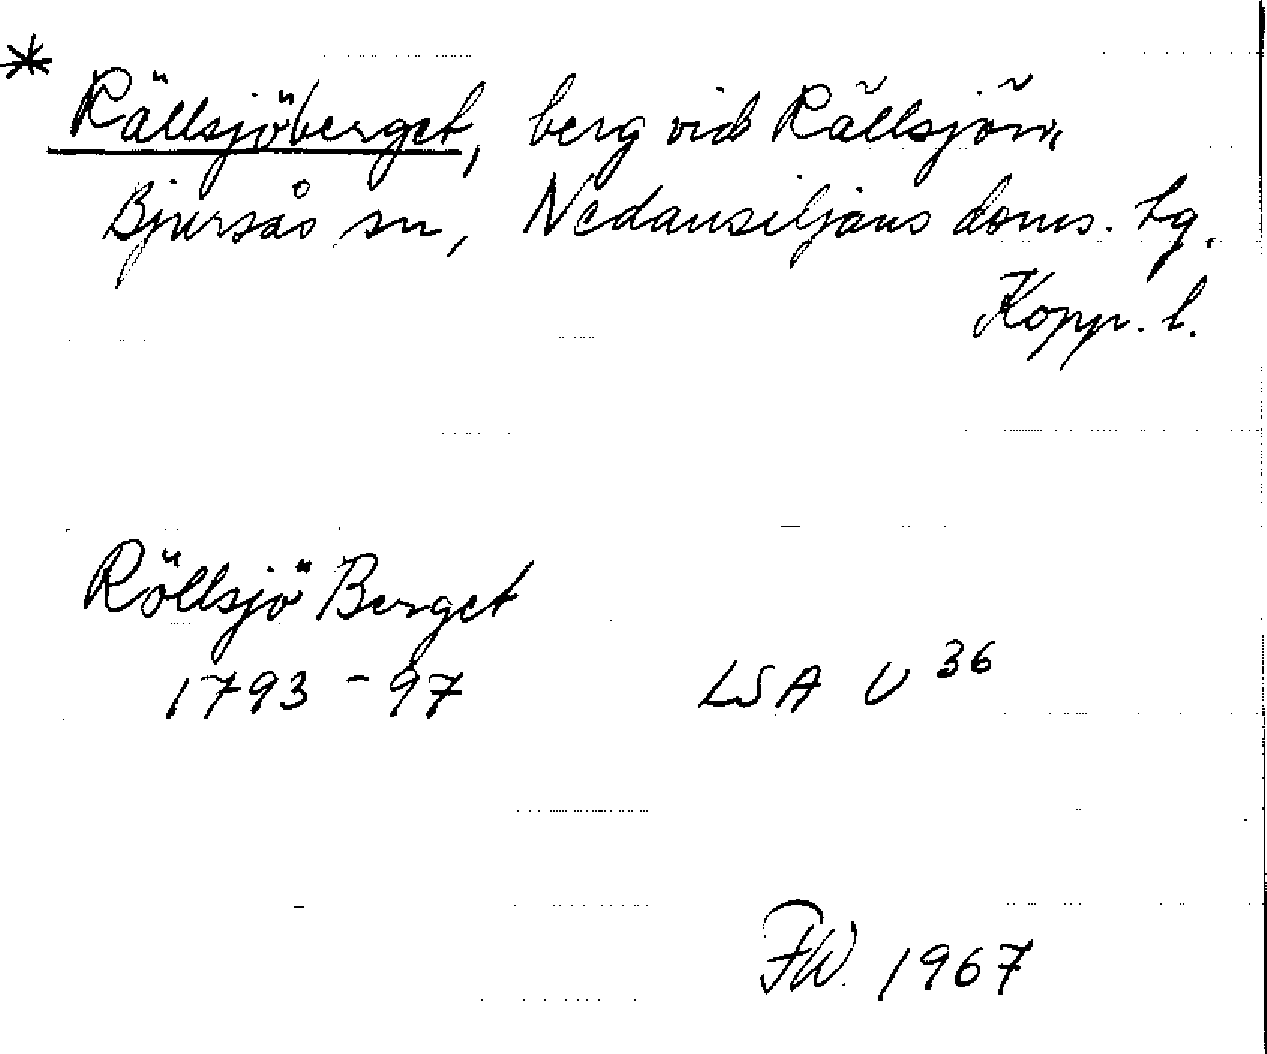 * Rällsjöberget, berg vid Rällsjön,
Bjursås sn, Nedansiljans doms. tg.
Kopp. l.
Röllsjö Berget
1793-97 LSA U 36
FW. 1967